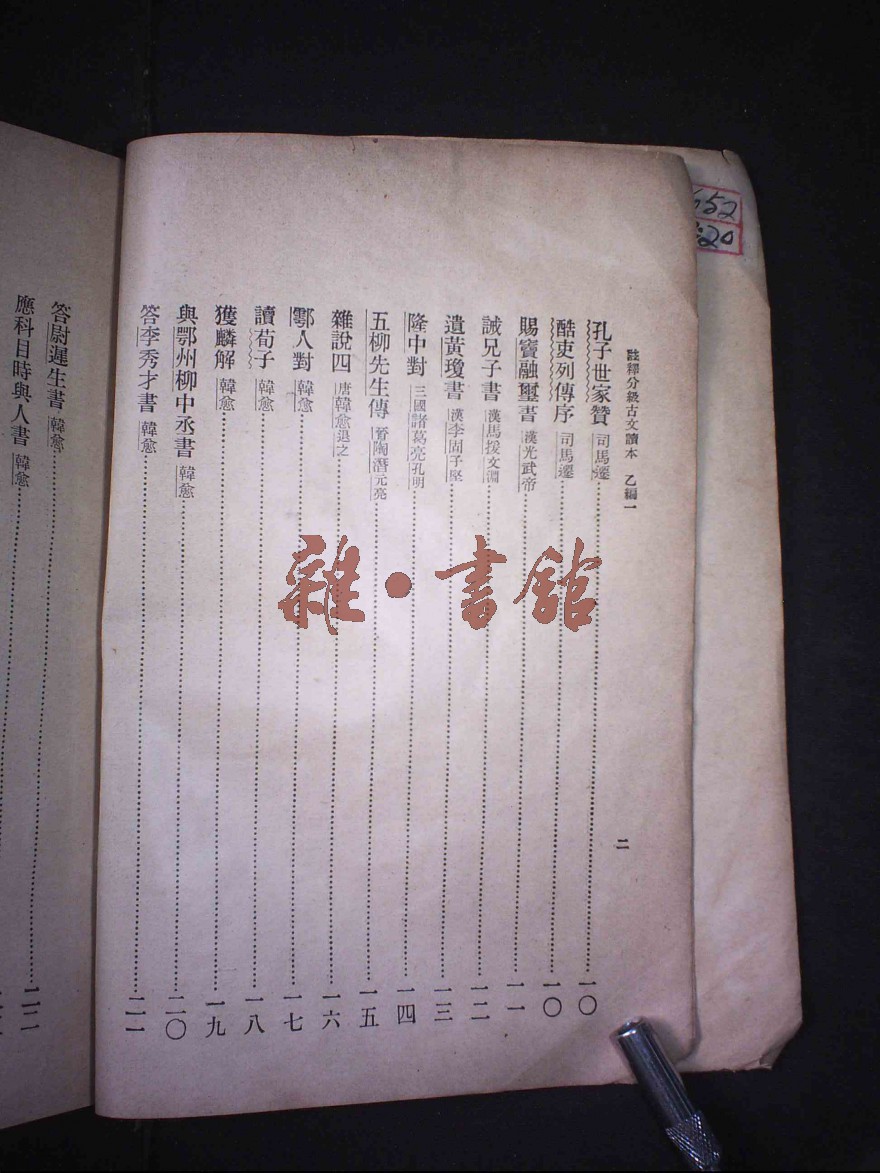 註釋分級古文讀本 乙編一 二
孔子世家贊 司馬遷 一〇
酷吏列傳序 司馬遷 一〇
賜竇融璽書 漢光武帝 一一
誡兄子書 漢馬援文淵 一二
遺黃瓊書 漢李固子堅 一三
隆中對 三國諸葛亮孔明 一四
五柳先生傳 晉陶潛元亮 一五
雜說四 唐韓愈退之 一六
鄠人對 韓愈 一七
讀荀子 韓愈 一八
獲麟解 韓愈 一九
與鄂州柳中丞書 韓愈 二〇
答李秀才書 韓愈 二一
答尉遲生書 韓愈 二二
應科目時與人書 韓愈
雜·書館
652
20